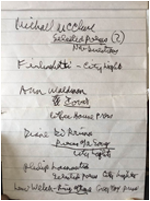 Michael McClure
Selected Poems (2)
New Directions
Ferlinghetti - City Lights
Ann Waldman
Coffee House Press
Diane Di Prima
Pieces of a Song
City Lights
Philip Lamantia
Selected Poems City Lights
Lew Welch - Ring of Bone Grey Fox Press